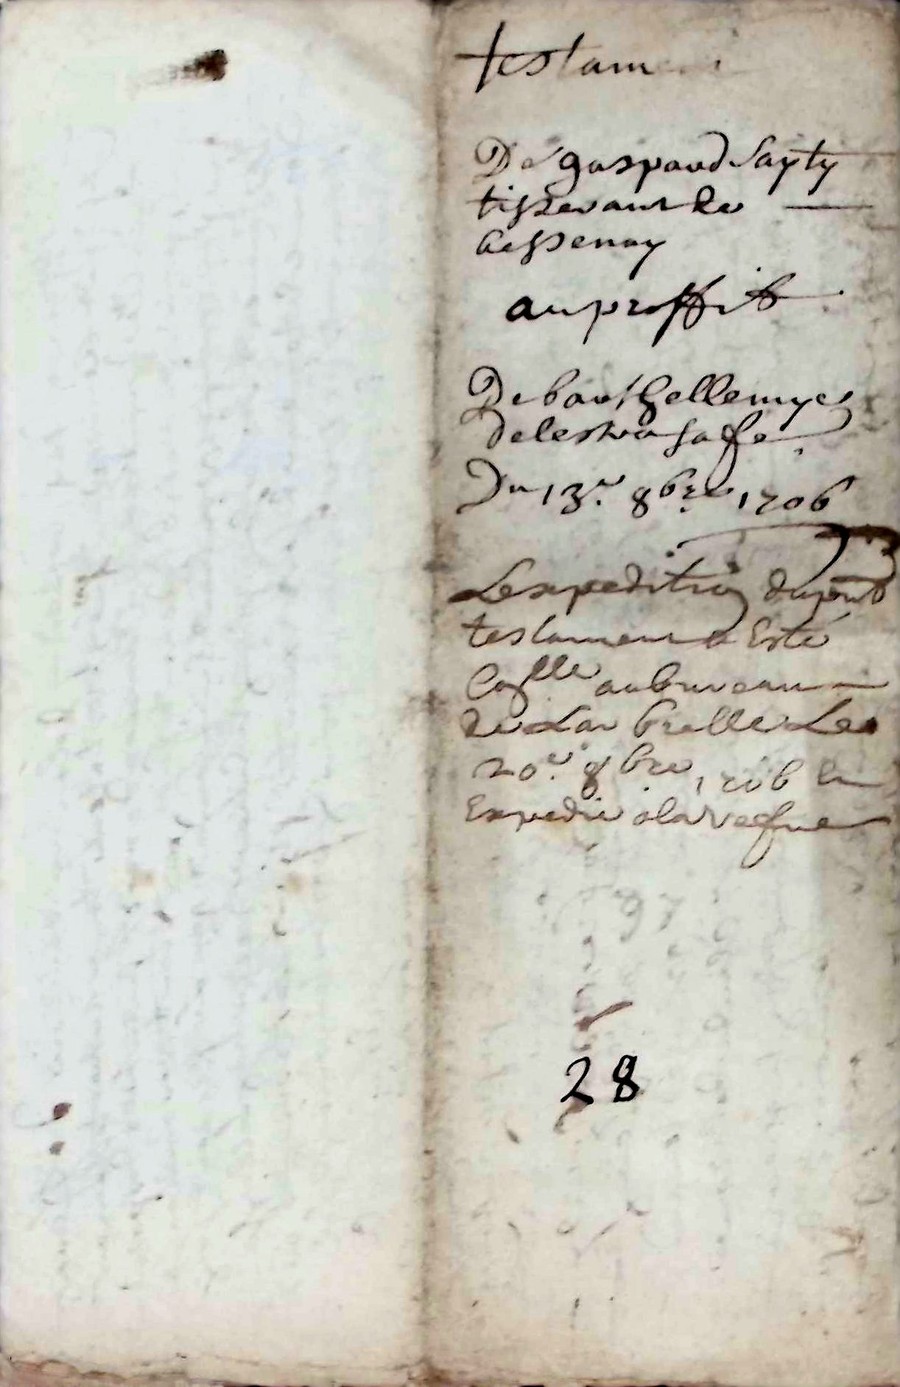 testament
De gaspard Sapty
tisserant de
Cessenoy
au proffit
De barthellemye
delestra sa fe
Du 13e 8bre 1706
Lexpedition dupnt
testament a Esté
au bureau
de Lar Le
20e 8bre 1706 Cn
Expedié a la
28